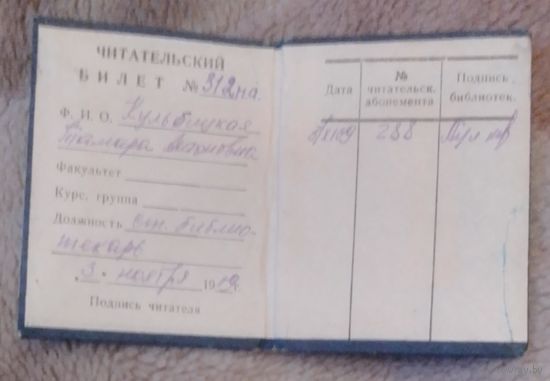 ЧИТАТЕЛЬСКИЙ
БИЛЕТ № 312 на
Ф. И. О. Кульбицкая
Тамара Антоновна
Факультет
Курс, группа
Должность ст. библио-
текарь
„3“ ноября 19
Подпись читателя
Дата
№ читательск. абонемента
Подпись библиотек.
288